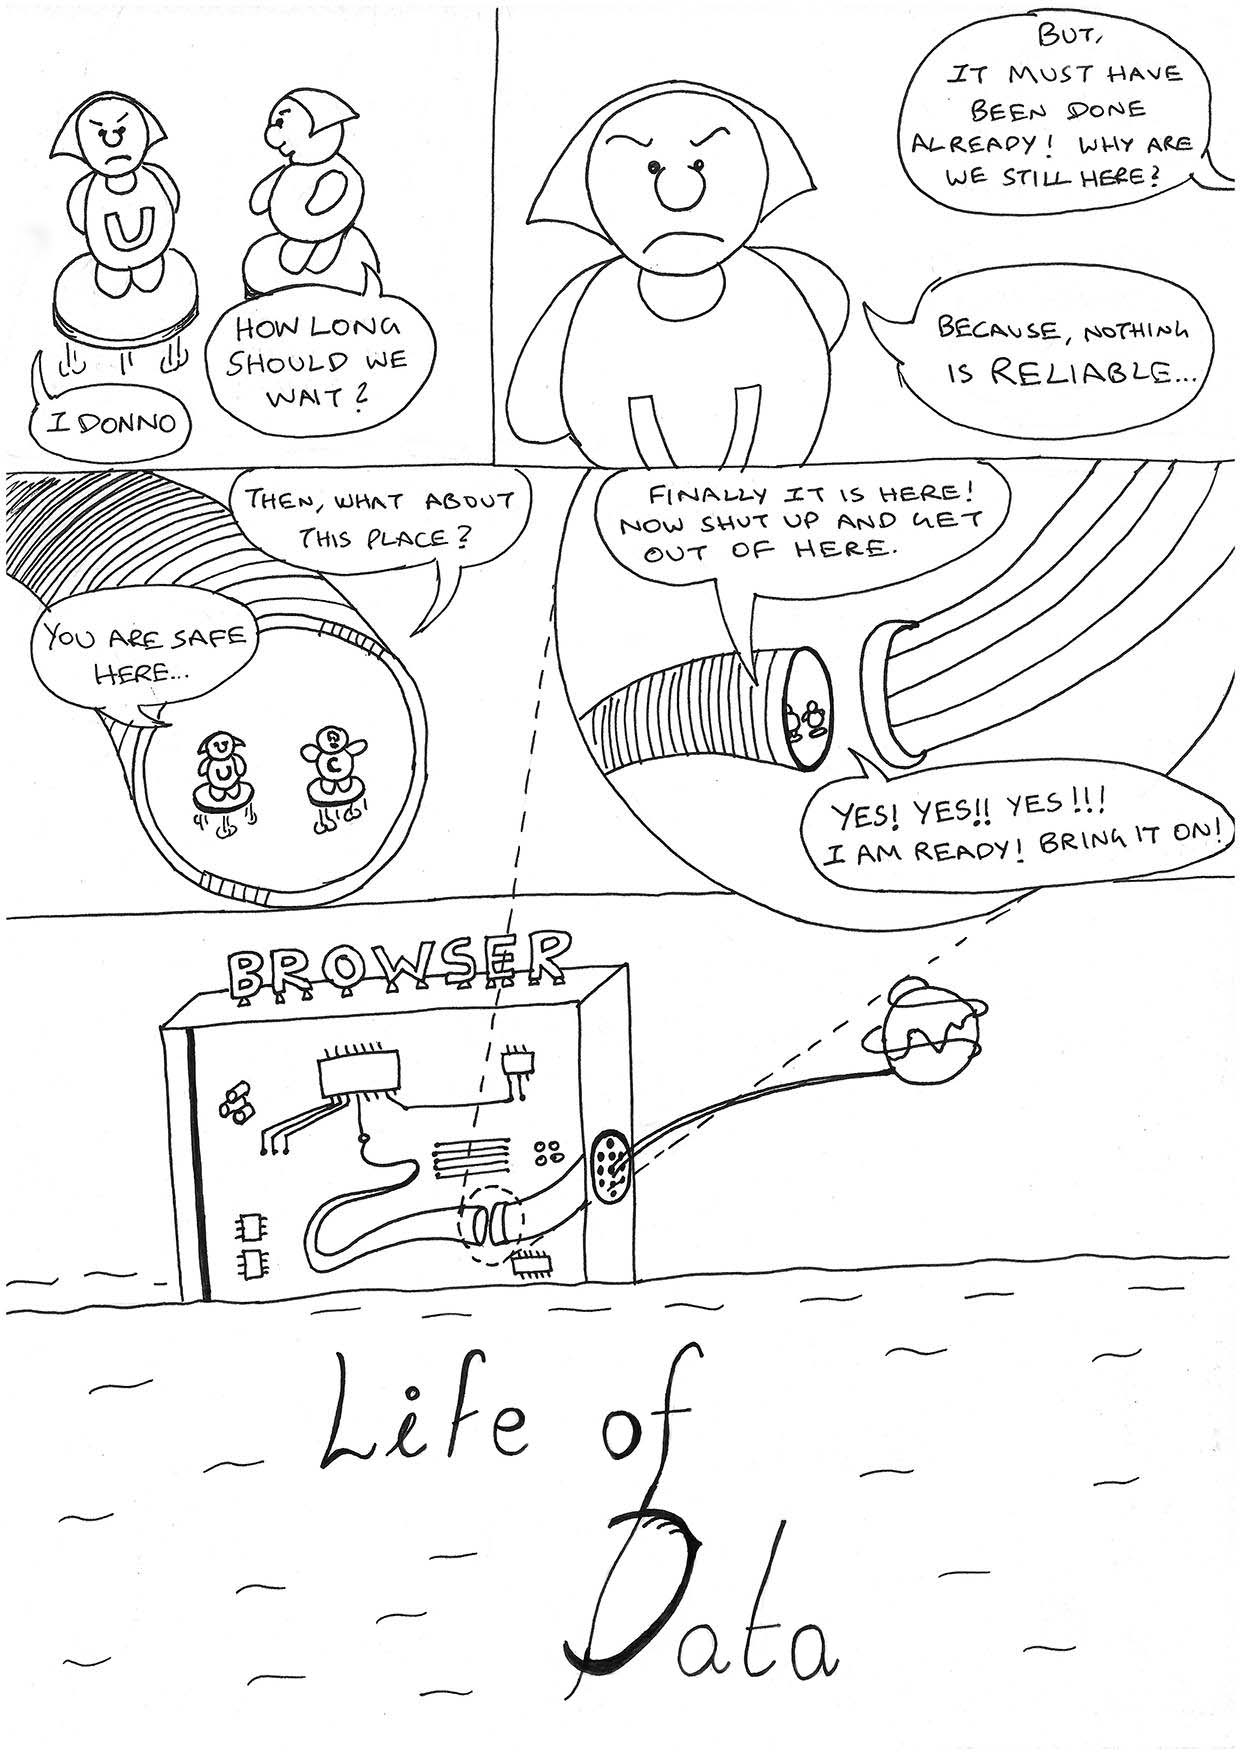 HOW LONG
SHOULD WE
WAIT?
I DONNO
U
BUT,
IT MUST HAVE
BEEN DONE
ALREADY! WHY ARE
WE STILL HERE?
BECAUSE, NOTHING
IS RELIABLE...
U
THEN, WHAT ABOUT
THIS PLACE?
YOU ARE SAFE
HERE...
U
C
FINALLY IT IS HERE!
NOW SHUT UP AND GET
OUT OF HERE.
YES! YES!! YES!!!
I AM READY! BRING IT ON!
BROWSER
Life of
Data